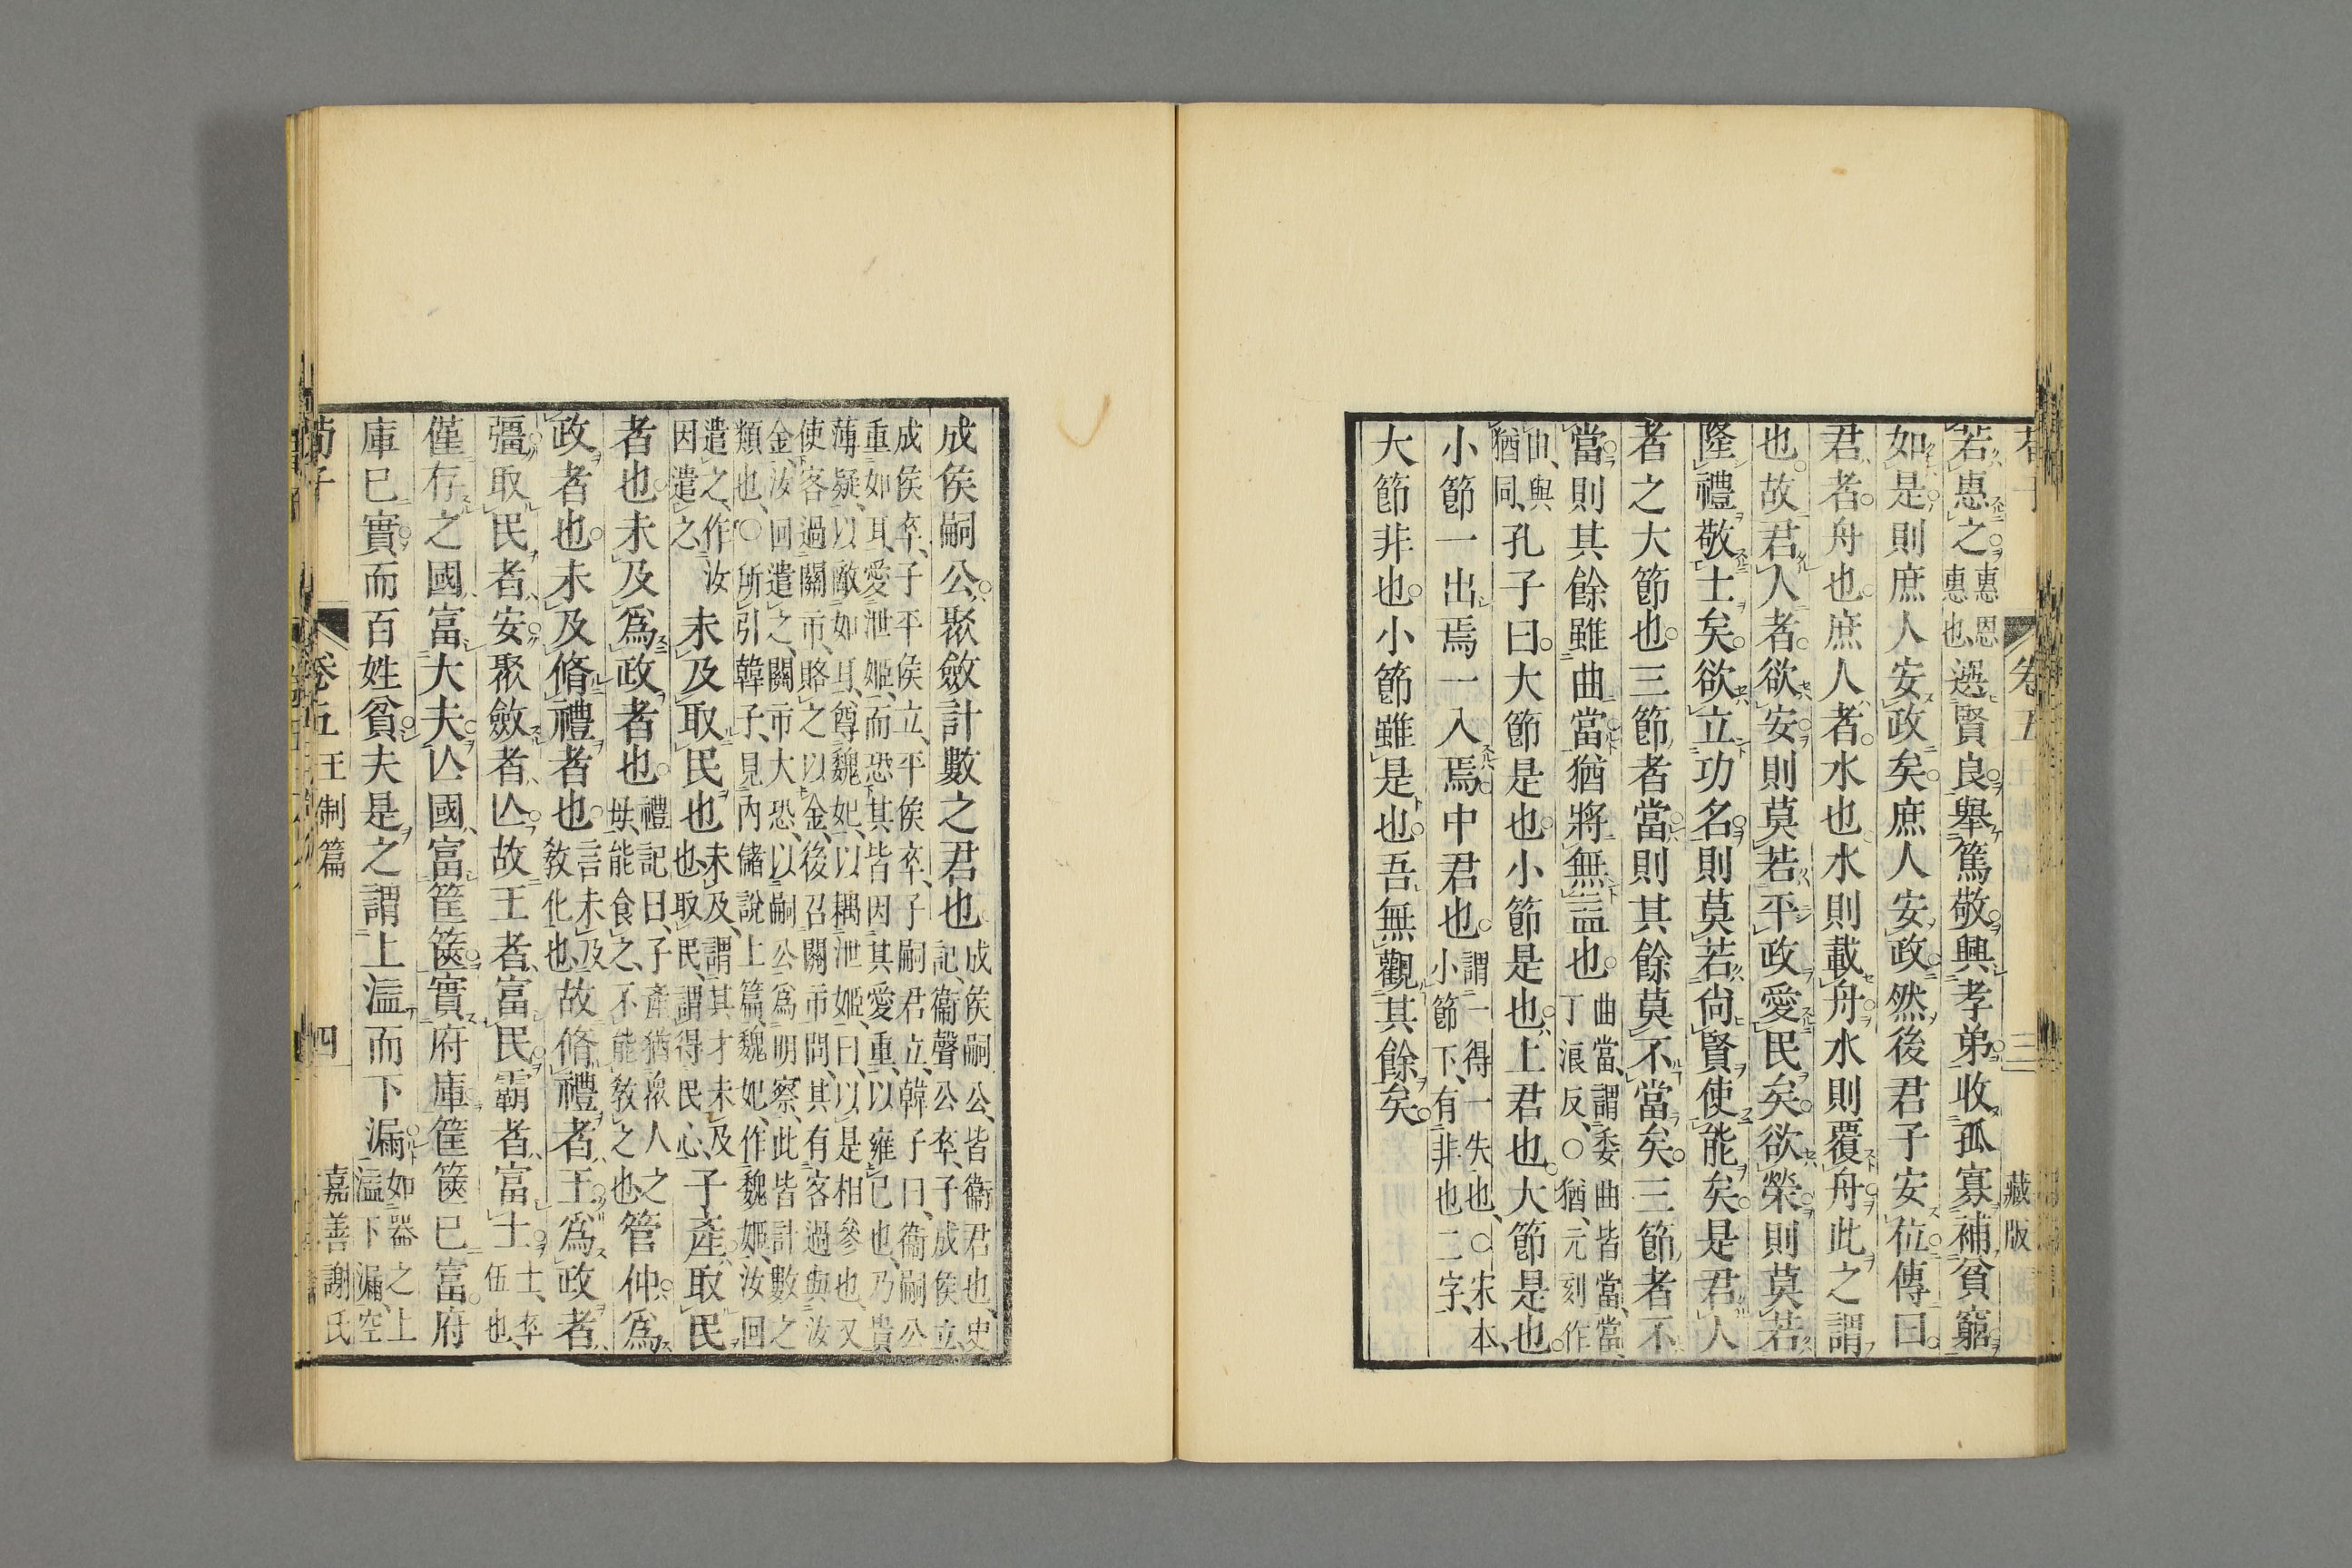 荀子 卷五 三 藏版
若惠之惠惠恩惠也選賢良舉篤敬興孝弟收孤寡補貧窮
如是則庶人安政矣庶人安政然後君子安位傳曰
君者舟也庶人者水也水則載舟水則覆舟此之謂
也故君人者欲安則莫若平政愛民矣欲榮則莫若
隆禮敬士矣欲立功名則莫若尙賢使能矣是君人
者之大節也三節者當則其餘莫不當矣三節者不
當則其餘雖曲當猶將無益也曲當謂委曲皆當當丁浪反○猶元刻作
由與猶同孔子曰大節是也小節是也上君也大節是也
小節一出焉一入焉中君也謂一得一失也○宋本小節下有非也二字
大節非也小節雖是也吾無觀其餘矣
成侯嗣公聚斂計數之君也成侯嗣公皆衞君也史記衞聲公卒子成侯立
成侯卒子平侯立平侯卒子嗣君立韓子曰衞嗣公
重如耳愛泄姬而恐其皆因其愛重以雍己也乃貴
薄疑以敵如耳尊魏妃以耦泄姬曰以是相參也又
使客過關市賂之以金後召關市問其有客過與汝
金汝回遣之關市大恐以嗣公爲明察此皆計數之
類也○所引韓子見內儲說上篇魏妃作魏姬汝回
遣之作汝因遣之未及取民也未及謂其才未及也取民謂得民心子產取民
者也未及爲政者也禮記曰子產猶衆人之母能食之不能敎之也管仲爲
政者也未及脩禮者也言未及敎化也故脩禮者王爲政者
彊取民者安聚斂者亾故王者富民霸者富士士卒伍也
僅存之國富大夫亾國富筐篋實府庫筐篋已富府
庫已實而百姓貧夫是之謂上溢而下漏如器之上溢下漏空
荀子 卷五 王制篇 四 嘉善謝氏